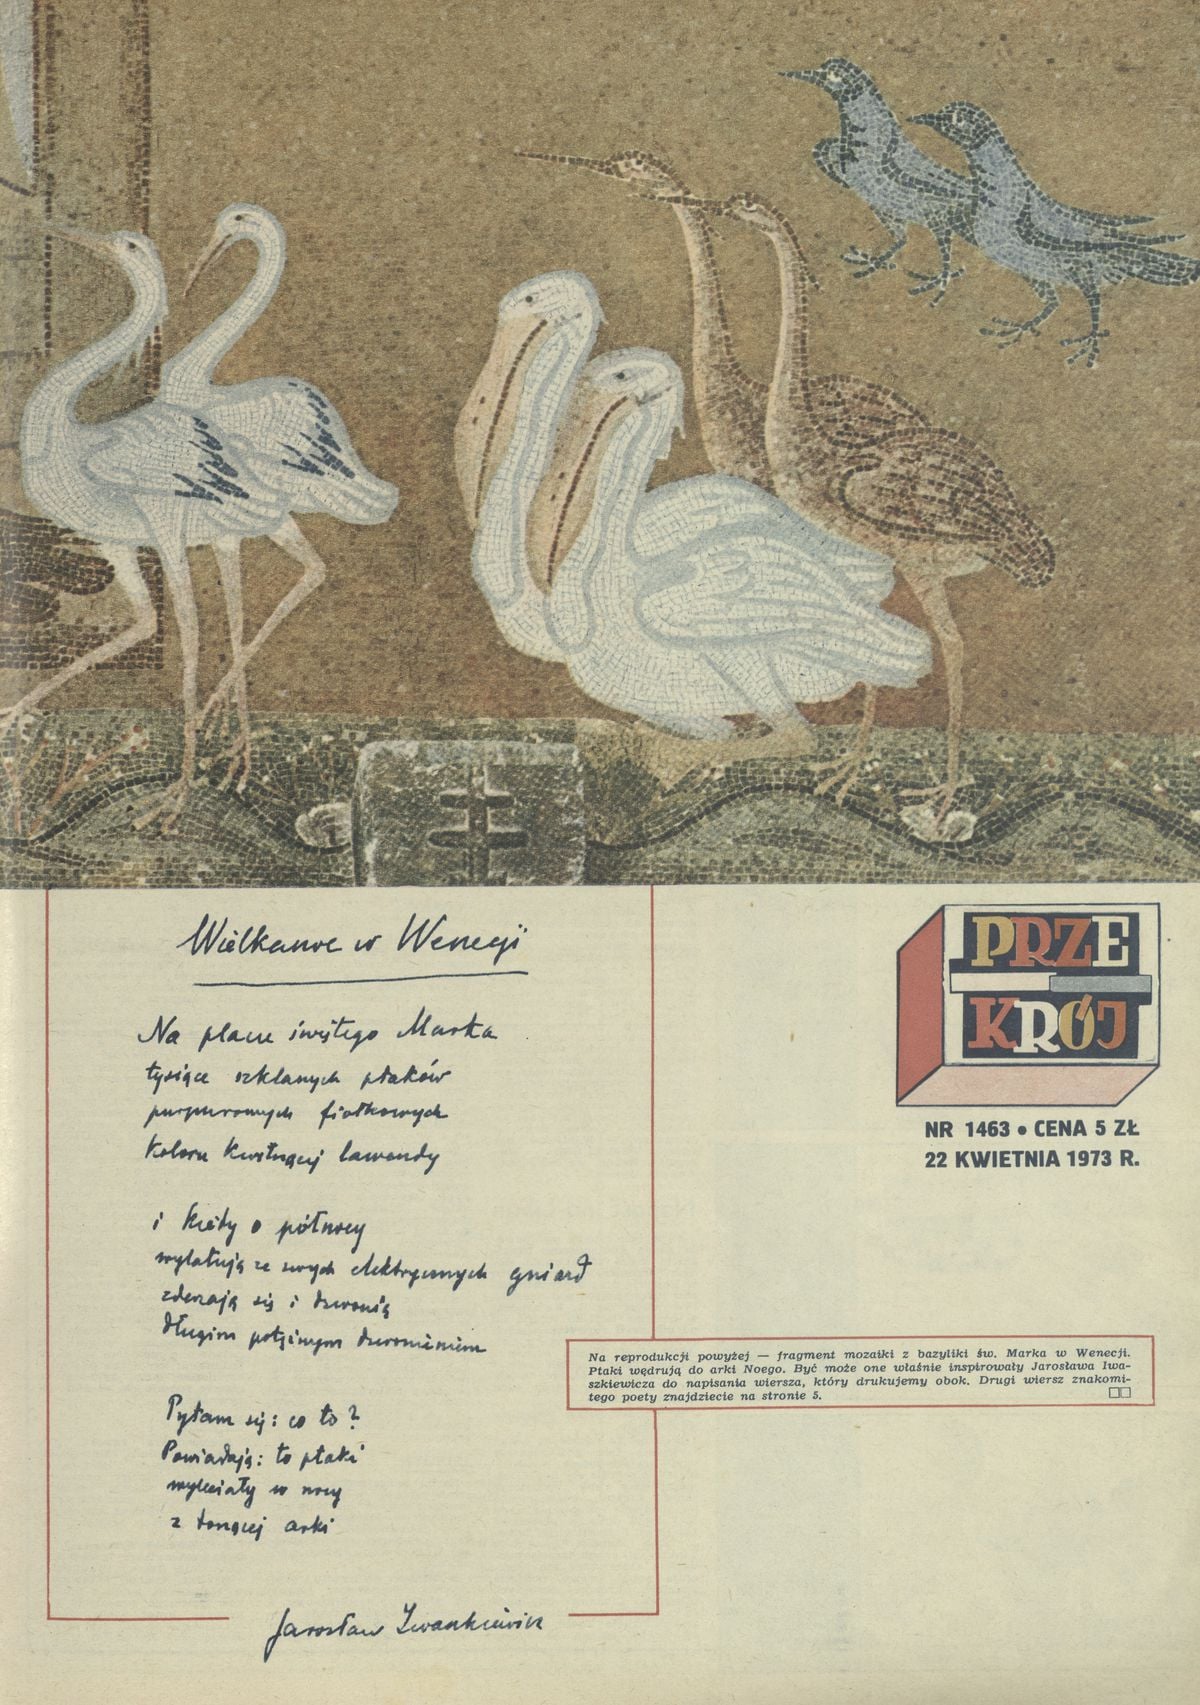 Wielkanoc w Wenecji
Na placu świętego Marka
tysiące szklanych ptaków
purpurowych fiołkowych
koloru kwitnącej lawendy
i kiedy o północy
wylatują ze swych elektrycznych gniazd
zderzają się i dzwonią
długim potężnym dzwonieniem
Pytam się: co to?
Powiadają: to ptaki
wyleciały w nocy
z tonącej arki
Jarosław Iwaszkiewicz
PRZE
KRÓJ
NR 1463 • CENA 5 ZŁ
22 KWIETNIA 1973 R.
Na reprodukcji powyżej — fragment mozaiki z bazyliki św. Marka w Wenecji.
Ptaki wędrują do arki Noego. Być może one właśnie inspirowały Jarosława Iwa-
szkiewicza do napisania wiersza, który drukujemy obok. Drugi wiersz znakomi-
tego poety znajdziecie na stronie 5.